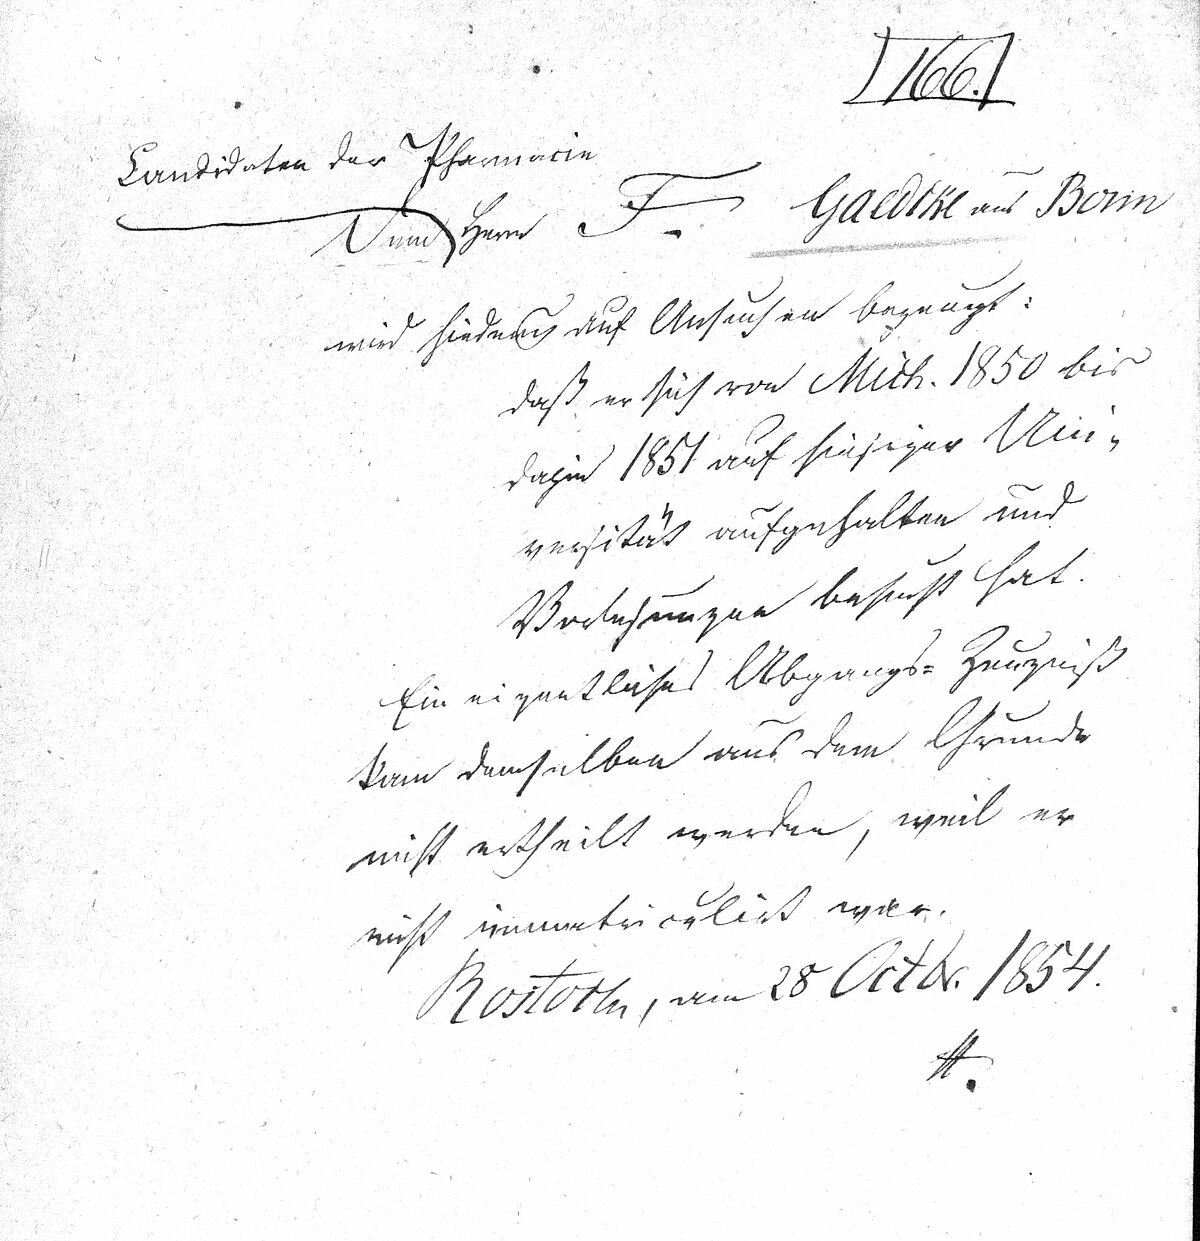 166.
Candidaten der Pharmacie
Dem Herrn F. Gaedcke aus Bonn
wird hiedurch auf Ansuchen bezeugt:
daß er sich von Mich. 1850 bis
dahin 1851 auf hiesiger Uni-
versität aufgehalten und
Vorlesungen besucht hat.
Ein eigentliches Abgangs-Zeugniß
kann demselben aus dem Grunde
nicht ertheilt werden, weil er
nicht immatriculirt war.
Rostock, am 28 Octbr. 1854.